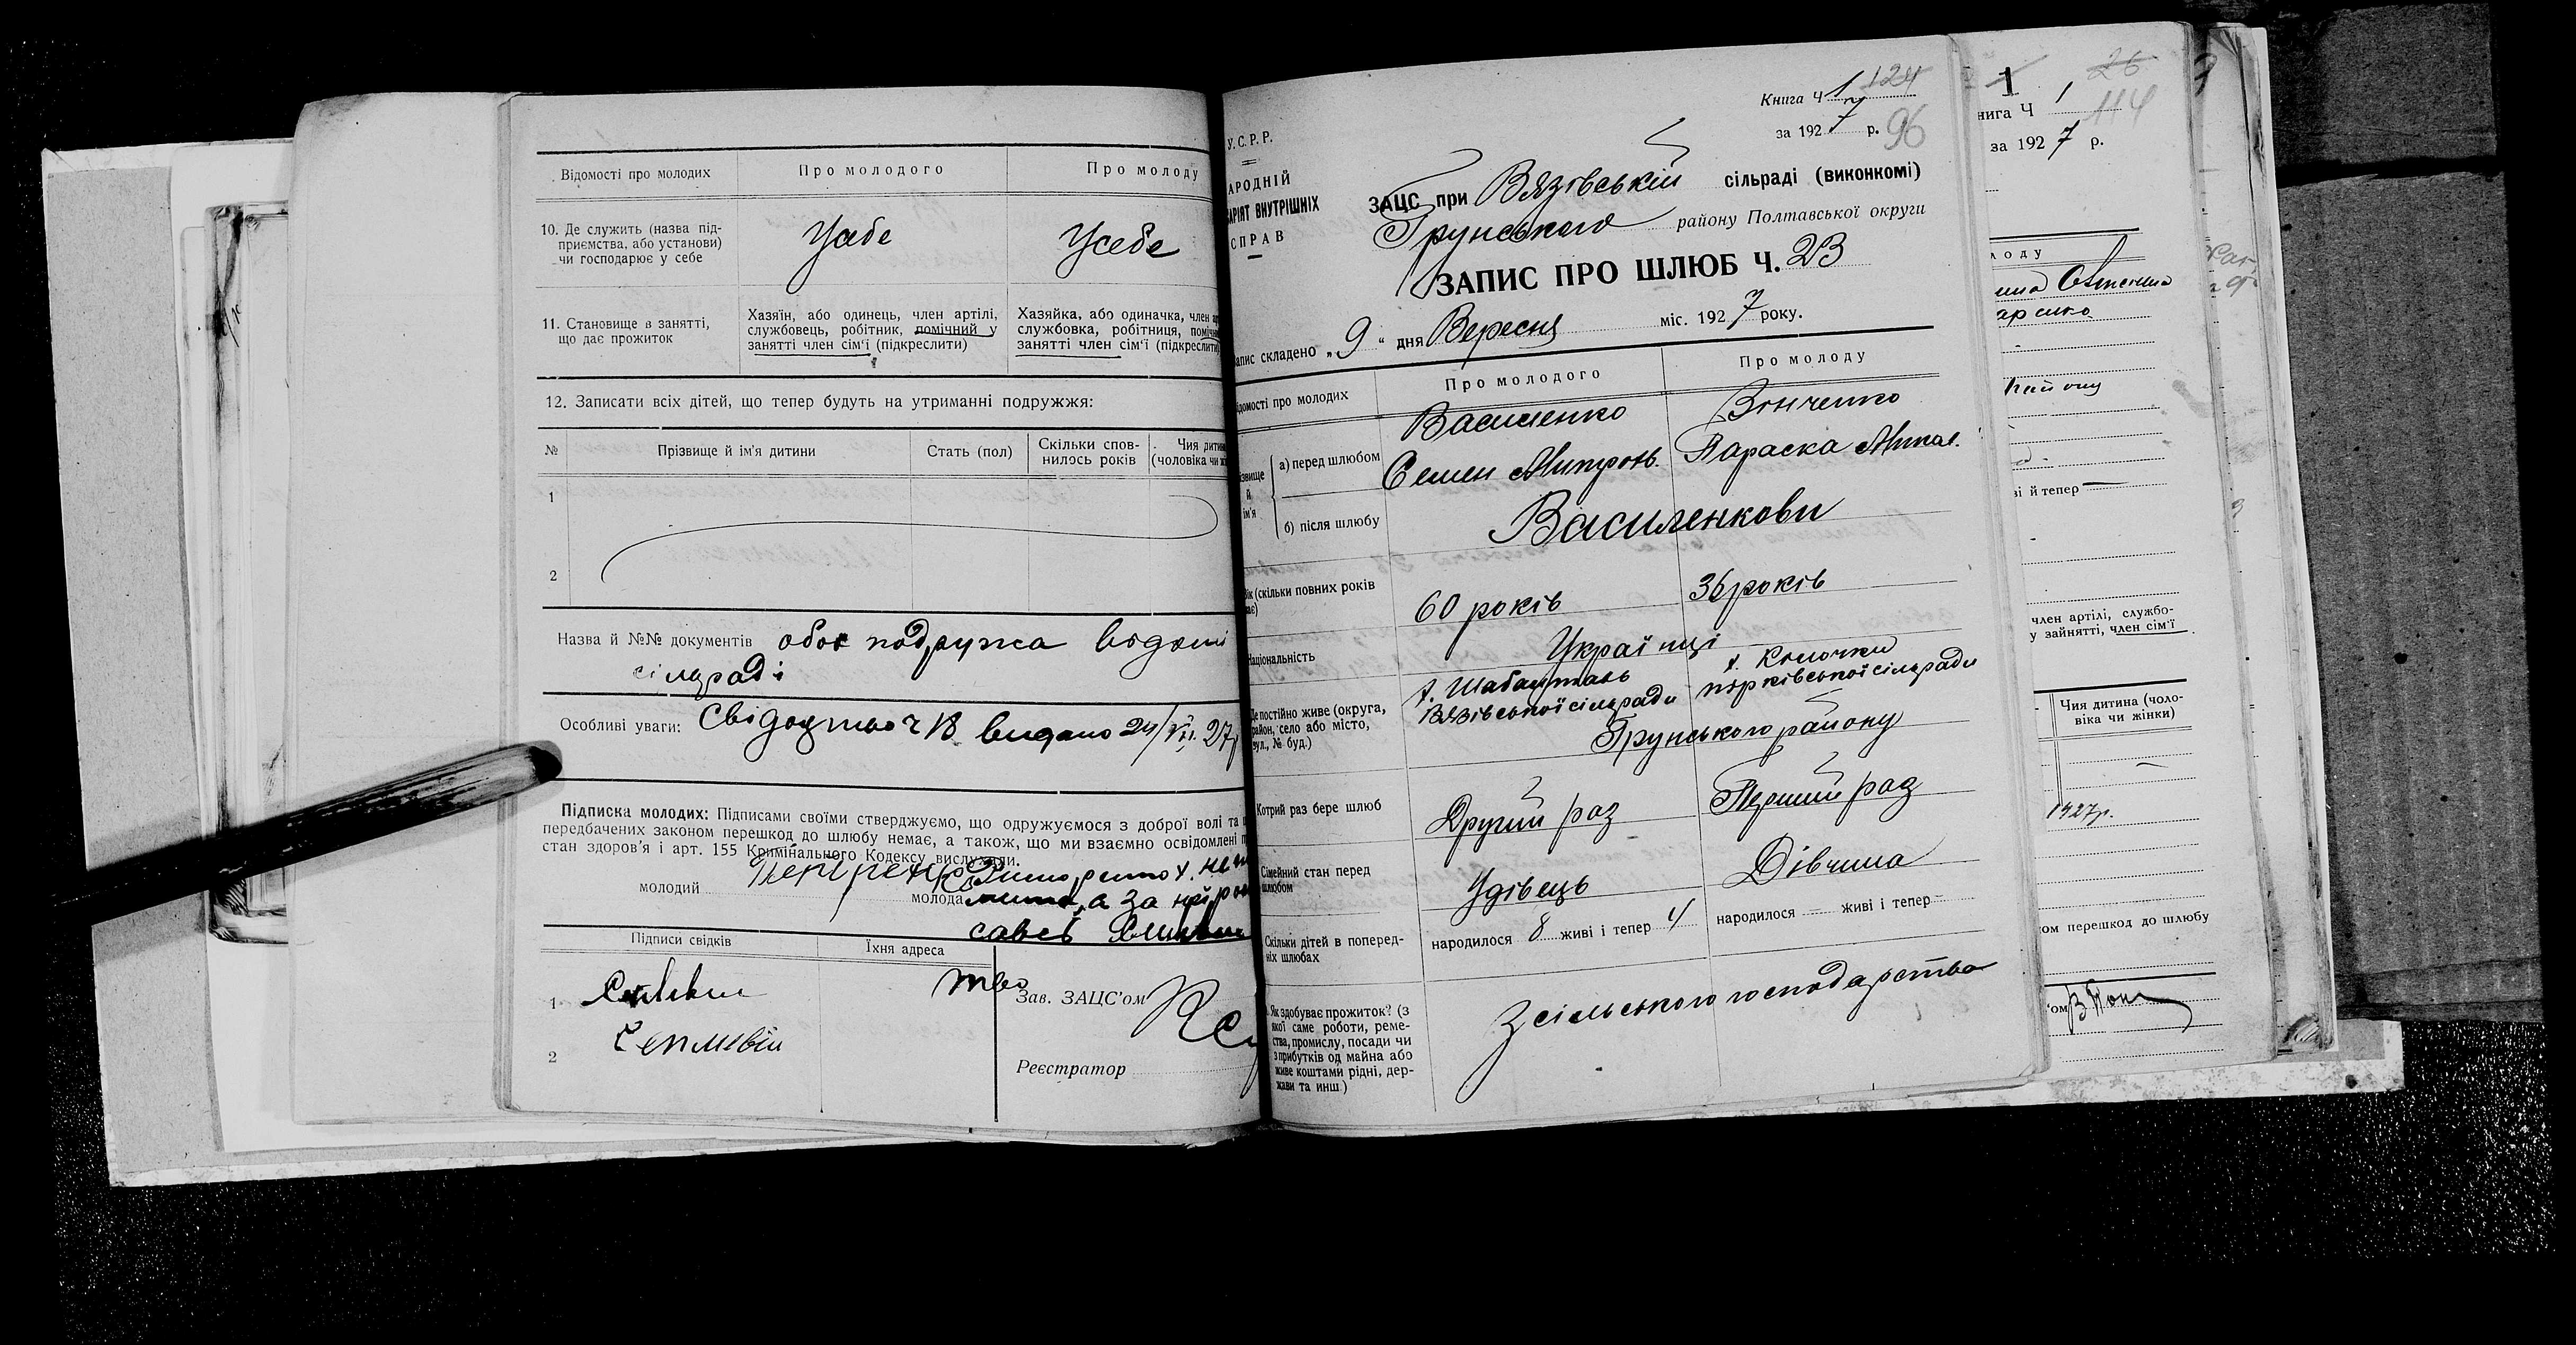 Відомості про молодих
Про молодого
Про молоду
10. Де служить (назва під-
приємства, або установи)
чи господарює у себе
Усебе
Усебе
11. Становище в занятті,
що дає прожиток
Хазяїн, або одинець, член артілі,
службовець, робітник, помічний у
занятті член сім'ї (підкреслити)
Хазяйка, або одиначка, член
службовка, робітниця,
занятті член сім'ї (підкреслити)
12. Записати всіх дітей, що тепер будуть на утриманні подружжя:
№
Прізвище й ім'я дитини
Стать (пол)
Скільки спов-
нилось років
Чия дитина
(чоловіка чи
1
2
Назва й №№ документів обоє подружа відомі
сілраді
Особливі уваги: видано 24/VII 27р
Підписка молодих: Підписами своїми стверджуємо, що одружуємося з доброї волі та
передбачених законом перешкод до шлюбу немає, а також, що ми взаємно освідомлені
стан здоров'я і арт. 155 Кримінального Кодексу вислухали.
молодий
молода а за
Підписи свідків
Їхня адреса
1
2
Зав. ЗАЦС'ом
Реєстратор
Книга Ч 1 124
за 1927 р. 96
У.С.Р.Р.
АРОДНІЙ
АРІЯТ ВНУТРІШНІХ
СПРАВ
ЗАЦС при Вязівській сільраді (виконкомі)
Грунського району Полтавської округи
ЗАПИС ПРО ШЛЮБ Ч. 23
апис складено „9“ дня Вересня міс. 1927 року.
ідомості про молодих
Про молодого
Про молоду
ізвище
й
ім'я
а) перед шлюбом
Василенко
Семен Митроп.
Зінченко
Параска Микол.
б) після шлюбу
Василенкови
Вік (скільки повних років
має)
60 років
36 років
Національність
Українці
Де постійно живе (округа,
район, село або місто,
вул., № буд.)
х.
Вязівської сілради
х.
сілради
Грунського району
Котрий раз бере шлюб
Другий раз
Перший раз
Сімейний стан перед
шлюбом
Удівець
Дівчина
Скільки дітей в поперед-
ніх шлюбах
народилося 8 живі і тепер 4
народилося — живі і тепер —
Як здобуває прожиток? (з
якої саме роботи, реме-
ства, промислу, посади чи
з прибутків од майна або
живе коштами рідні, дер-
жави та инш.)
З сільського господарства
1 26
нига Ч 1 114
за 1927 р.
лоду
ві й тепер —
член артілі, службо-
у зайнятті, член сім'ї
Чия дитина (чоло-
віка чи жінки)
1927р.
ом перешкод до шлюбу
'ом